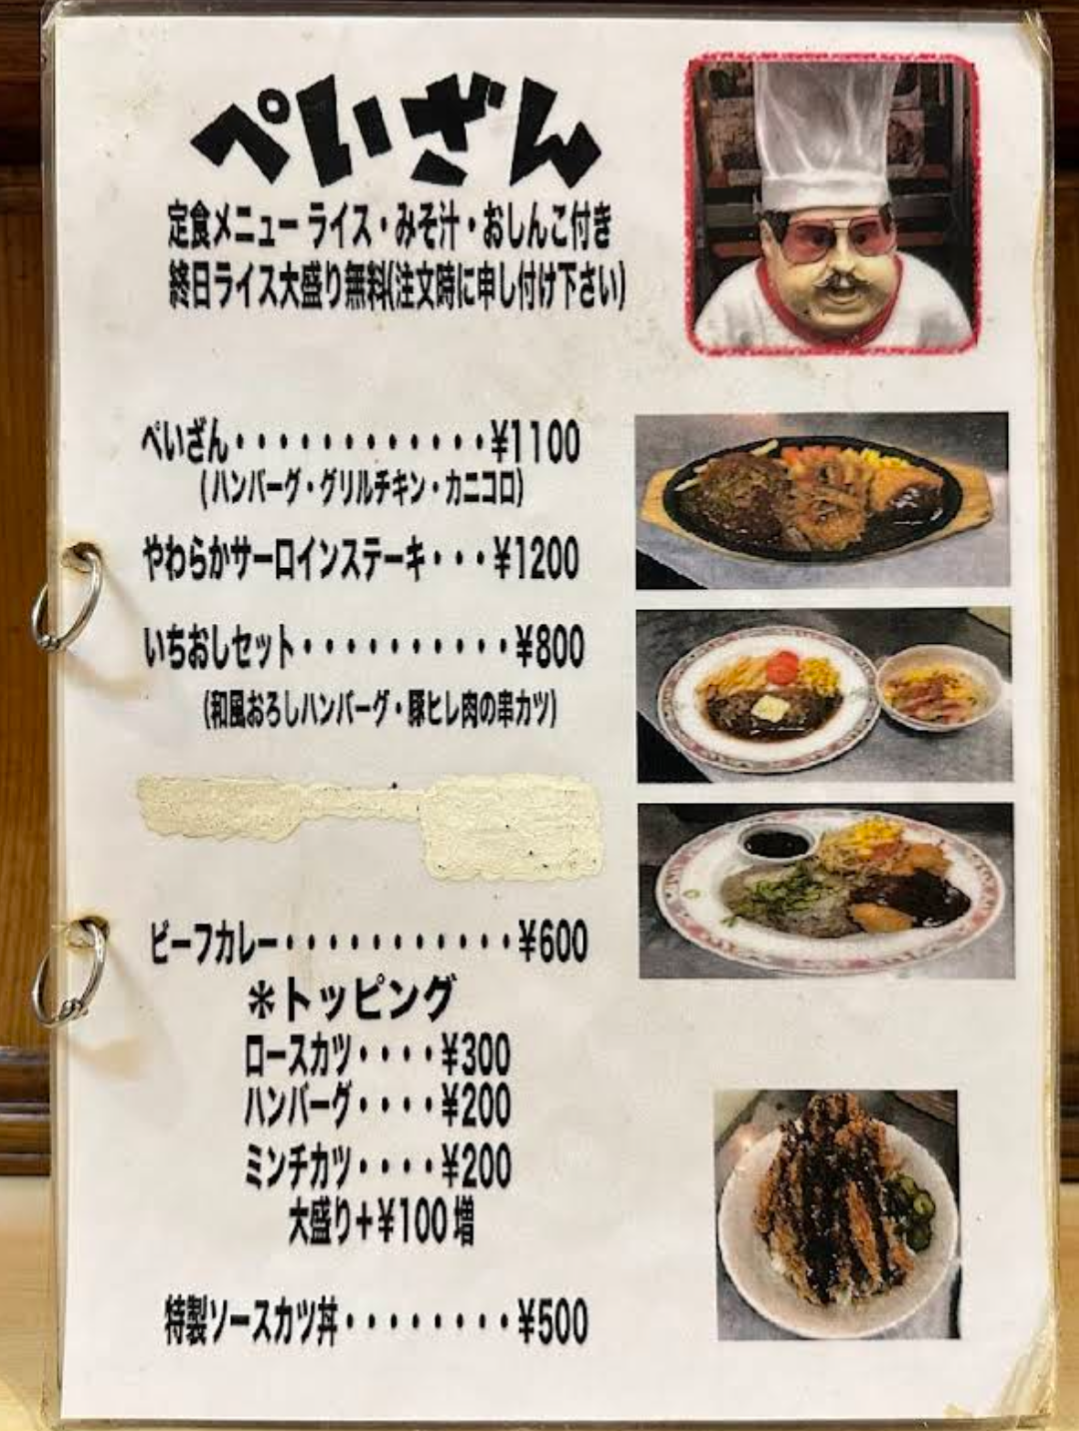 ぺいざん
定食メニュー ライス・みそ汁・おしんこ付き
終日ライス大盛り無料(注文時に申し付け下さい)
ぺいざん・・・・・・・・・・・・¥1100
(ハンバーグ・グリルチキン・カニコロ)
やわらかサーロインステーキ・・・¥1200
いちおしセット・・・・・・・・・・¥800
(和風おろしハンバーグ・豚ヒレ肉の串カツ)
ビーフカレー・・・・・・・・・・・¥600
＊トッピング
ロースカツ・・・・¥300
ハンバーグ・・・・¥200
ミンチカツ・・・・¥200
大盛り+¥100増
特製ソースカツ丼・・・・・・・・¥500